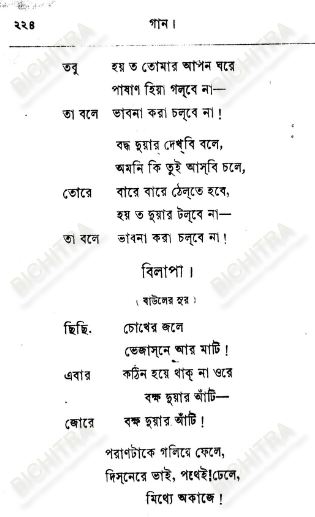 ২২৪ গান।
তবু হয় ত তোমার আপন ঘরে
পাষাণ হিয়া গল্‌বে না—
তা বলে ভাবনা করা চল্‌বে না!
বদ্ধ দুয়ার দেখ্‌বি বলে,
অমনি কি তুই আস্‌বি চলে,
তোরে বারে বারে ঠেল্‌তে হবে,
হয় ত দুয়ার টল্‌বে না—
তা বলে ভাবনা করা চল্‌বে না!
বিলাপা।
(বাউলের সুর)
ছিছি. চোখের জলে
ভেজাস্‌নে আর মাটি!
এবার কঠিন হয়ে থাক্‌ না ওরে
বক্ষ দুয়ার আঁটি—
জোরে বক্ষ দুয়ার আঁটি!
পরাণটাকে গলিয়ে ফেলে,
দিস্‌নেরে ভাই, পথেই ঢেলে,
মিথ্যে অকাজে!
BICHITRA
BICHITRA
BICHITRA
BICHITRA
BICHITRA
BICHITRA